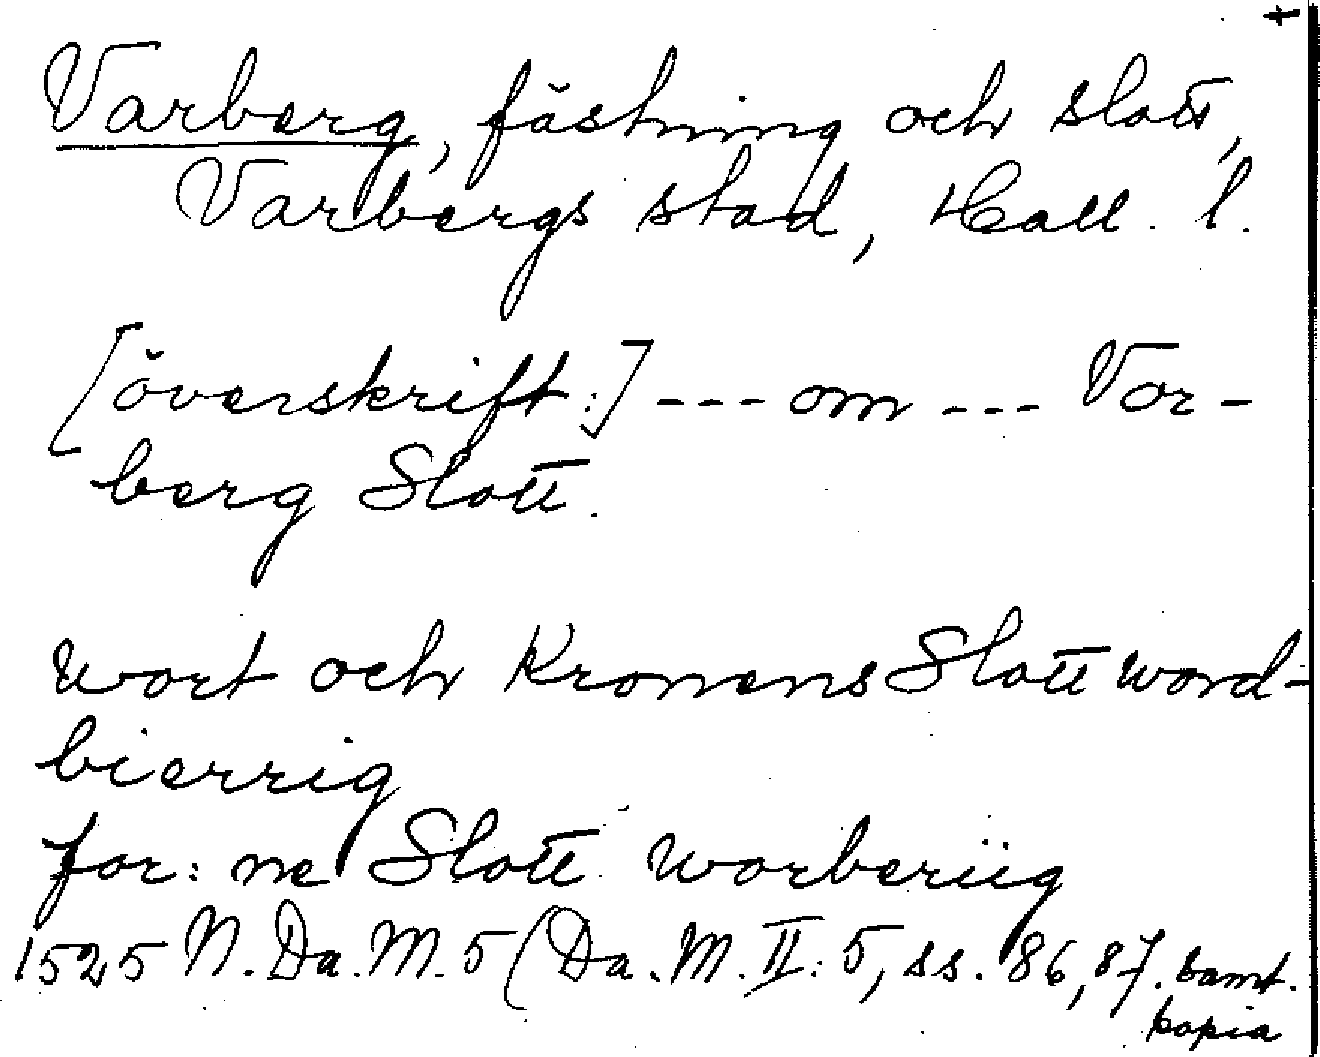 t
Varberg, fästning och slott,
Varbergs stad, Hall. l.
[överskrift:] --- om --- Vor-
berg Slott.
wort och Kronens Slott word-
bierrig
for: ne Slott worberiig
1525 N. Da. M. 5 (Da. M. II: 5, ss. 86, 87. samt.
kopia